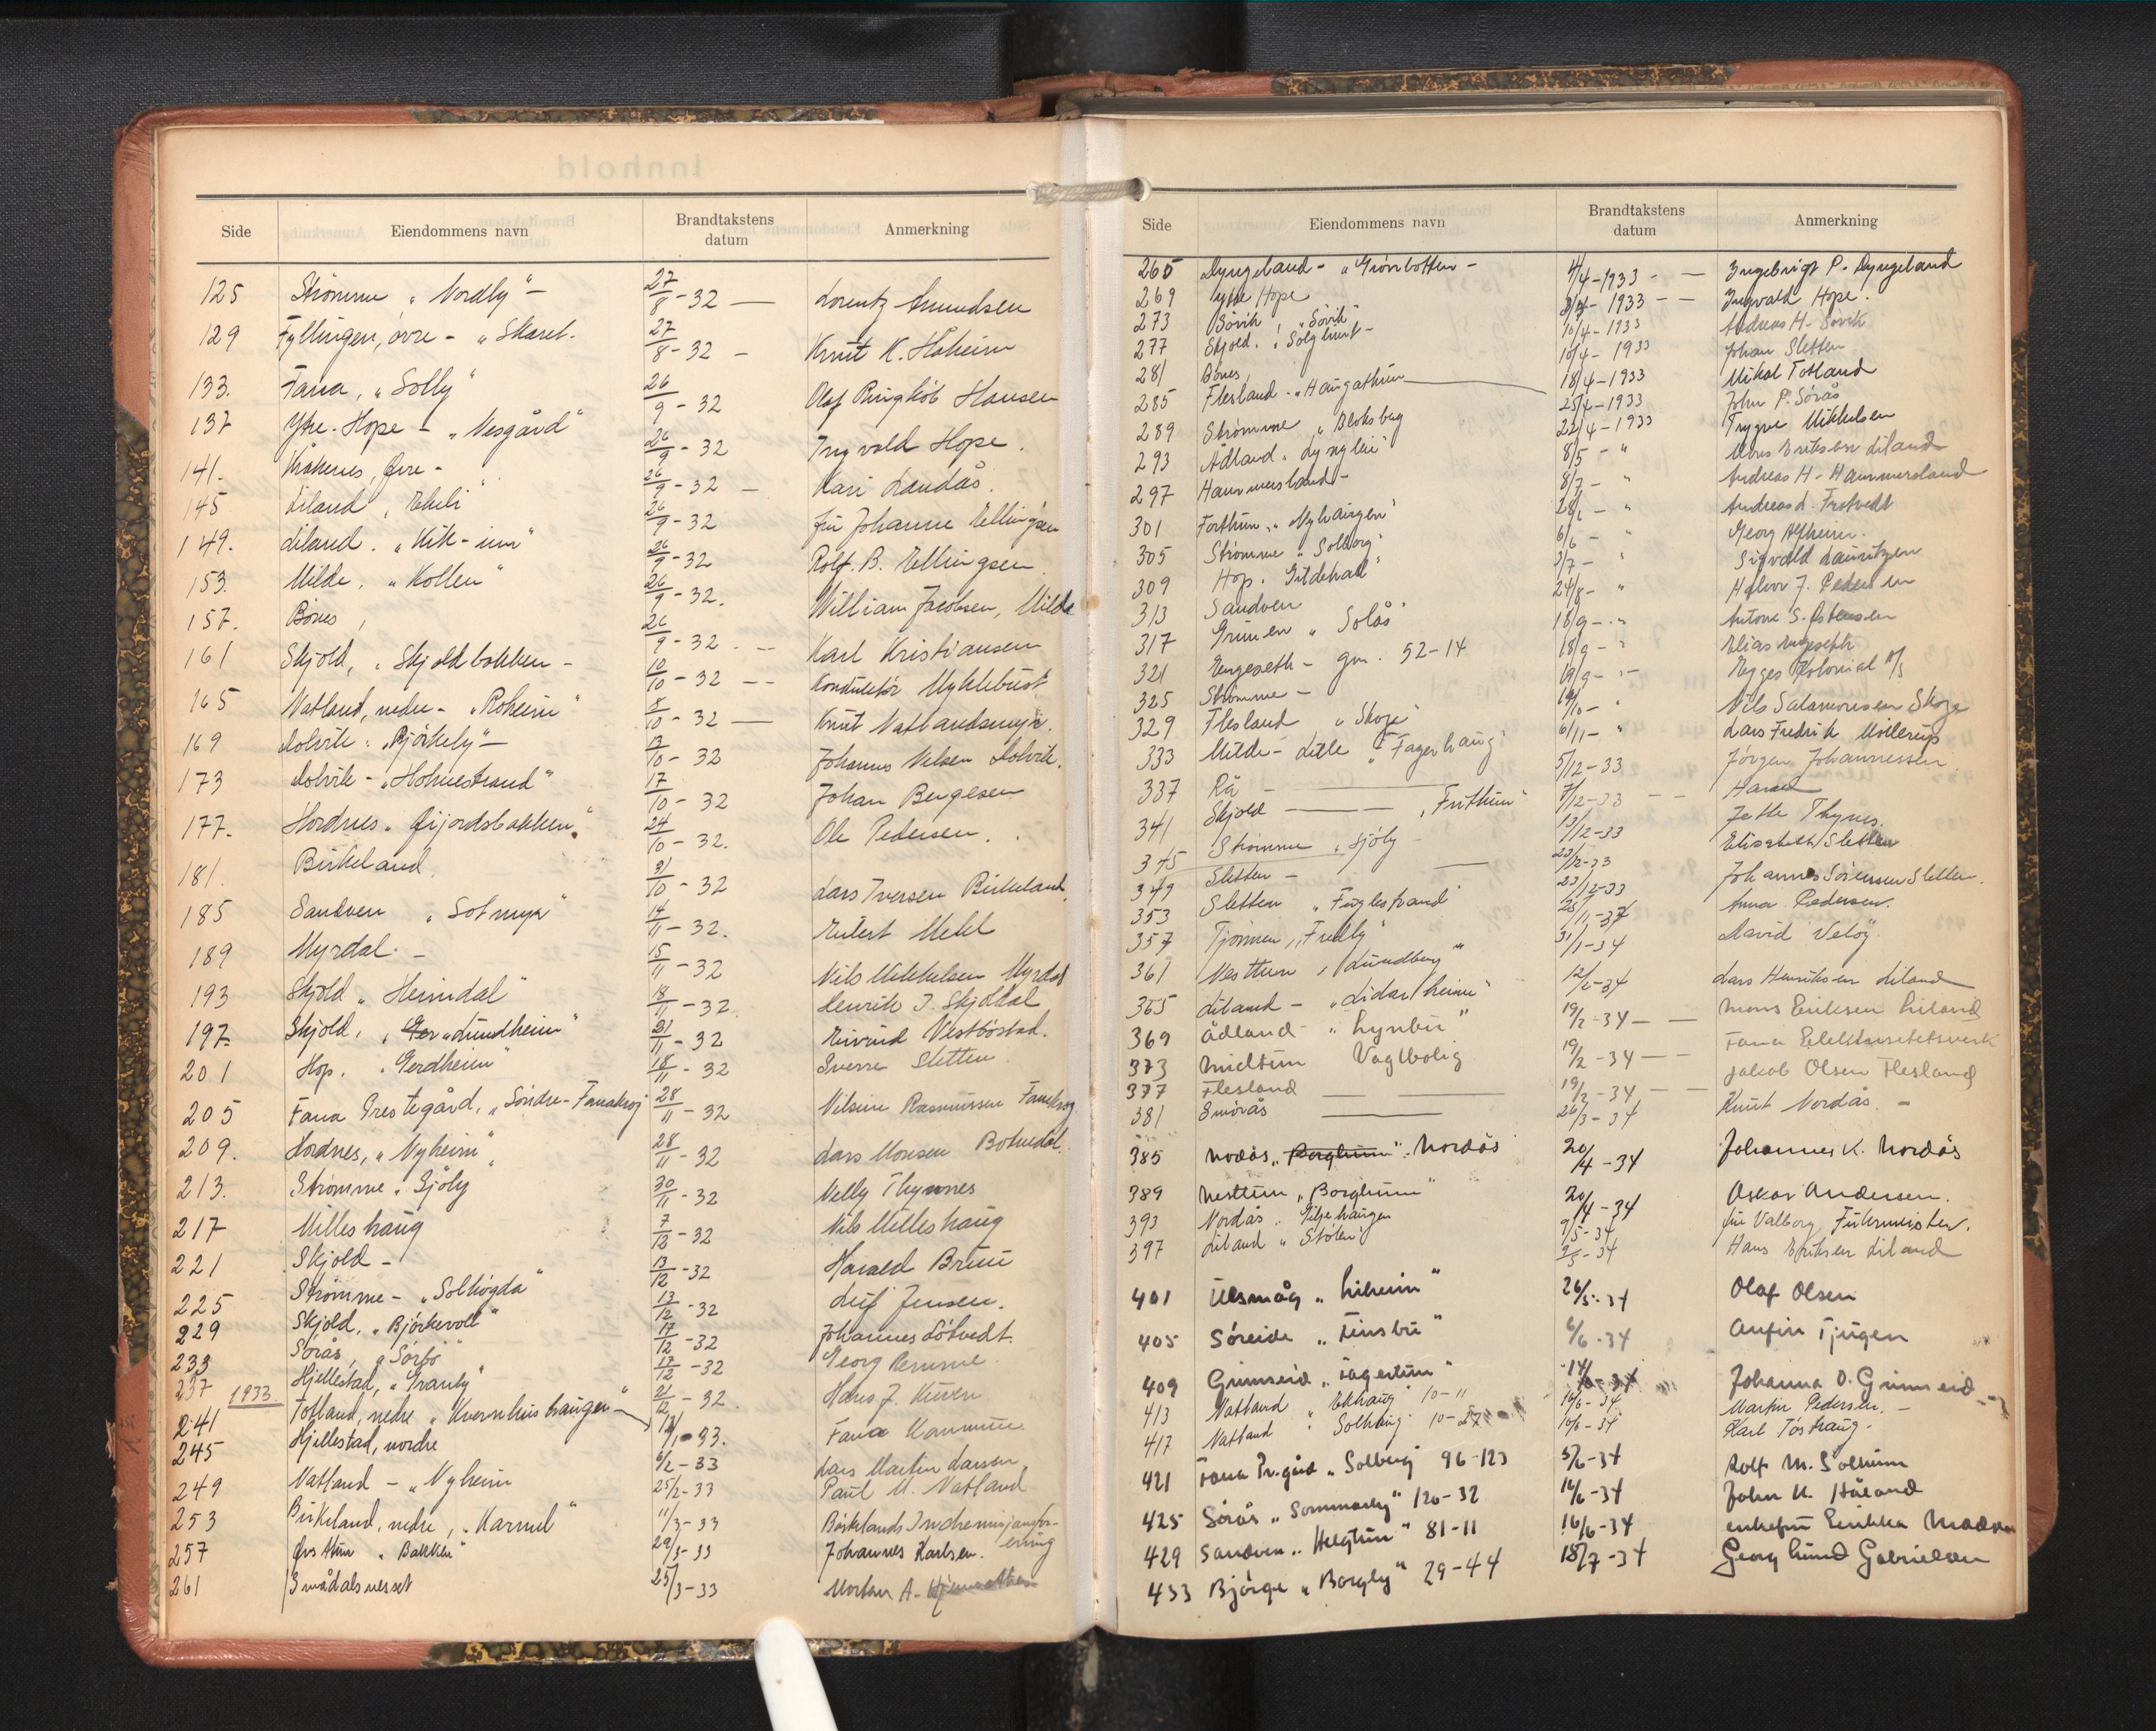 Side Eiendommens navn Brandtakstens datum Anmerkning
125 Strömme „Nordly“ – 27/8 - 32 — Lorentz Amundsen
129 Fyllingen, övre - „Skaret. 27/8 - 32 – Knut K. Höheim
133. Fana, „Solly“ 26/9 - 32 Olaf Ringköb Hansen
137 Ytre-Hope - „Nesgård“ 26/9 - 32 Ingvald Hope.
141. Kråkenes, Övre - 26/9 - 32 – Kari Landås.
145 Liland, „Ekeli“ 26/9 - 32 fru Johanne Ellingsen
149. Liland. „Kik-inn“ 26/9 - 32 Rolf. B. Ellingsen.
153. Milde, „Kollen“ 26/9 - 32. William Jacobsen, Milde
157. Bönes, 26/9 - 32. -- Karl Kristiansen
161 Skjold, „Skjoldbakken - 10/10 - 32 -- Konduktör Myklebust
165 Natland, nedre - „Roheim“ 8/10 - 32 — Knut Natlandsmyr.
169 Dolvik. „Björkely“ – 13/10 - 32 Johannes Nilsen Dolvik.
173 Dolvik - „Holmestrand“ 17/10 - 32 Johan Bergesen
177. Hordnes „Gjjordsbakken“ 24/10 - 32. Ole Pedersen.
181. Birkeland. 31/10 - 32 Lars Iversen Birkeland.
185 Sandven „Solmyr“ 14/11 - 32. Eilert Mehl
189 Myrdal. - 15/11 - 32 Nils Mikkelsen Myrdal
193 Skjold „Heimdal“ 18/11 - 32. Henrik J. Skjoldal
197. Skjold, „Lundheim“ 21/11 - 32 Eivind Vestböstad.
201 Hop. „Gerdheim“ 18/11 - 32 Sverre Sletten
205 Fana Prestegård, „Söndre-Fanakroj 28/11 - 32 Nilsine Rasmussen Fanakrog
209. Hordnes, „Nyheim“ 28/11 - 32 Lars Monsen Botnedal.
213. Strömme „Sjöly 30/11 - 32 Nelly Thynnes
217 Milleshaug 7/12 - 32 Nils Milleshaug
221 Skjold - 13/12 - 32 Harald Bruu
225 Strömme - „Solhögda“ 13/12 - 32 Leif Jensen.
229 Skjold, „Björkevoll“ 17/12 - 32 Johannes Lötvedt.
233 Sörås, „Sörbö“ 17/12 - 32 Georg Remme.
237 Hjellestad, „Granly“ 21/12 - 32. Hans J. Kuven
1933
241 Totland, nedre „Kvernhushaugen“ 1 - 33. Fana Kommune.
245 Hjellestad, nordre 6/2 - 33 Lars Martin Larsen
249 Natland - „Nyheim 25/2 - 33 Paul M. Natland
253 Birkeland, nedre, „Karmel“ 11/3 - 33 Birkelands Indremisjonsforening
257 Övsttun „Bakken“ 29/3 - 33 Johannes Karlsen.
261 Smådalsnesset 25/3 - 33 Morten A.
Side Eiendommens navn Brandtakstens datum Anmerkning
265 Dyngeland - „Grönbotten - 4/4 - 1933 - — Ingebrigt P. Dyngeland
269 Ytre Hope 3/4 - 1933 -- Ingvald Hope.
273 Sövik, „Sövik“ 10/4 - 1933 Andreas H. Sövik
277 Skjold. „Solglimt - 10/4 - 1933 Johan Sletten
281 Bönes, 18/4 - 1933 Mikal Totland
285 Flesland. „Haugatun 25/4 - 1933 John P. Sörås
289 Strömme „Bloksberg 22/4 - 1933 Trygve Mikkelsen
293 Ådland. „Lynglii“ 8/5 - „ Mons Eriksen Liland
297 Hammersland - 8/7 - „ Andreas H. Hammersland
301 Forthun. „Nyhaugen“ 28/6 - „ Andreas L. Frotvedt
305 Strömme „Solborg“ 6/6 - „ Georg Alfheim.
309 Hop. Gildehall 3/7 - „ Sigvald Lauritzen
313 Sandven 24/8 - „ Halvor J. Pedersen
317 Grimen „Solås“ 18/9 - „ Antone S. Östensen
321 Engeseth - gnr. 52-14 18/9 - „ Elias Engeseth
325 Strömme - 19/9 - „ Egges Kolonial A/S
329 Flesland „Skoge“ 19/10 - „ Nils Salamonsen Skoge
333 Milde - Litle „Fagerhaug“ 6/11 - „ Lars Fredrik Möllerup
337 Rå - — 5/12 - 33 Jörgen Johannessen.
341 Skjold — „Frithun“ 7/12 - 33 --
345 Strömme „Sjöly - 13/12 - 33 Jette Thynes.
349 Sletten - — 23/12 - 33 Elisabeth Sletten
353 Sletten „Fuglestrand“ 23/12 - 33 Johannes Sörensen Sletten.
357 Tjönnen, „Fredly“ Anna Pedersen.
361 Nesttun, „Lundberg“ 31/1 - 34 David Velöy.
365 Liland - „Lidarheim“ 12/2 - 34 Lars Henriksen Liland
369 Ådland - „Lynbu“ 19/2 - 34 — – Mons Eriksen Liland
373 Midttun Vaglbolig 19/2 - 34 — - Fana Elektrisitetsverk
377 Flesland — 19/2 - 34 — – Jakob Olsen Flesland
381 Smörås — 26/3 - 34 Knut Nordås. -
385 Nodås, „Borghum“. Nordås 20/4 - 34 Johannes K. Nordås
389 Nesttun „Borghum“ 20/4 - 34 Oskar Andersen.
393 Nordås. Giljehaugen 9/5 - 34 fru Valborg Führmeister.
397 Liland „Stölen“ 9/5 - 34 Hans Eriksen Liland
401 Ulsmåg „Liheim“ 26/5 - 34 Olaf Olsen
405 Söreide „Finsbu“ 6/6 - 34 Anfin Tjugen
409 Grimseid „Fagertun“ 14/6 - 34 Johanna O. Grimseid
413 Natland „Ekhaug“ 10-11 16/6 - 34 Martin Pedersen. -
417 Natland „Solhaug“ 10-27 16/6 - 34 Karl Töshaug.
421 Fana Pr.gård „Solberg“ 96-123 5/6 - 34 Rolf M. Solheim
425 Sörås „Sommarly“ 120-32 16/6 - 34 John K. Håland
429 Sandven „Helgtun“ 81-11 16/6 - 34 enkefru Lerikka
433 Bjørge „Borgly“ 29-44 18/7 - 34 Georg Lund Gabrielsen